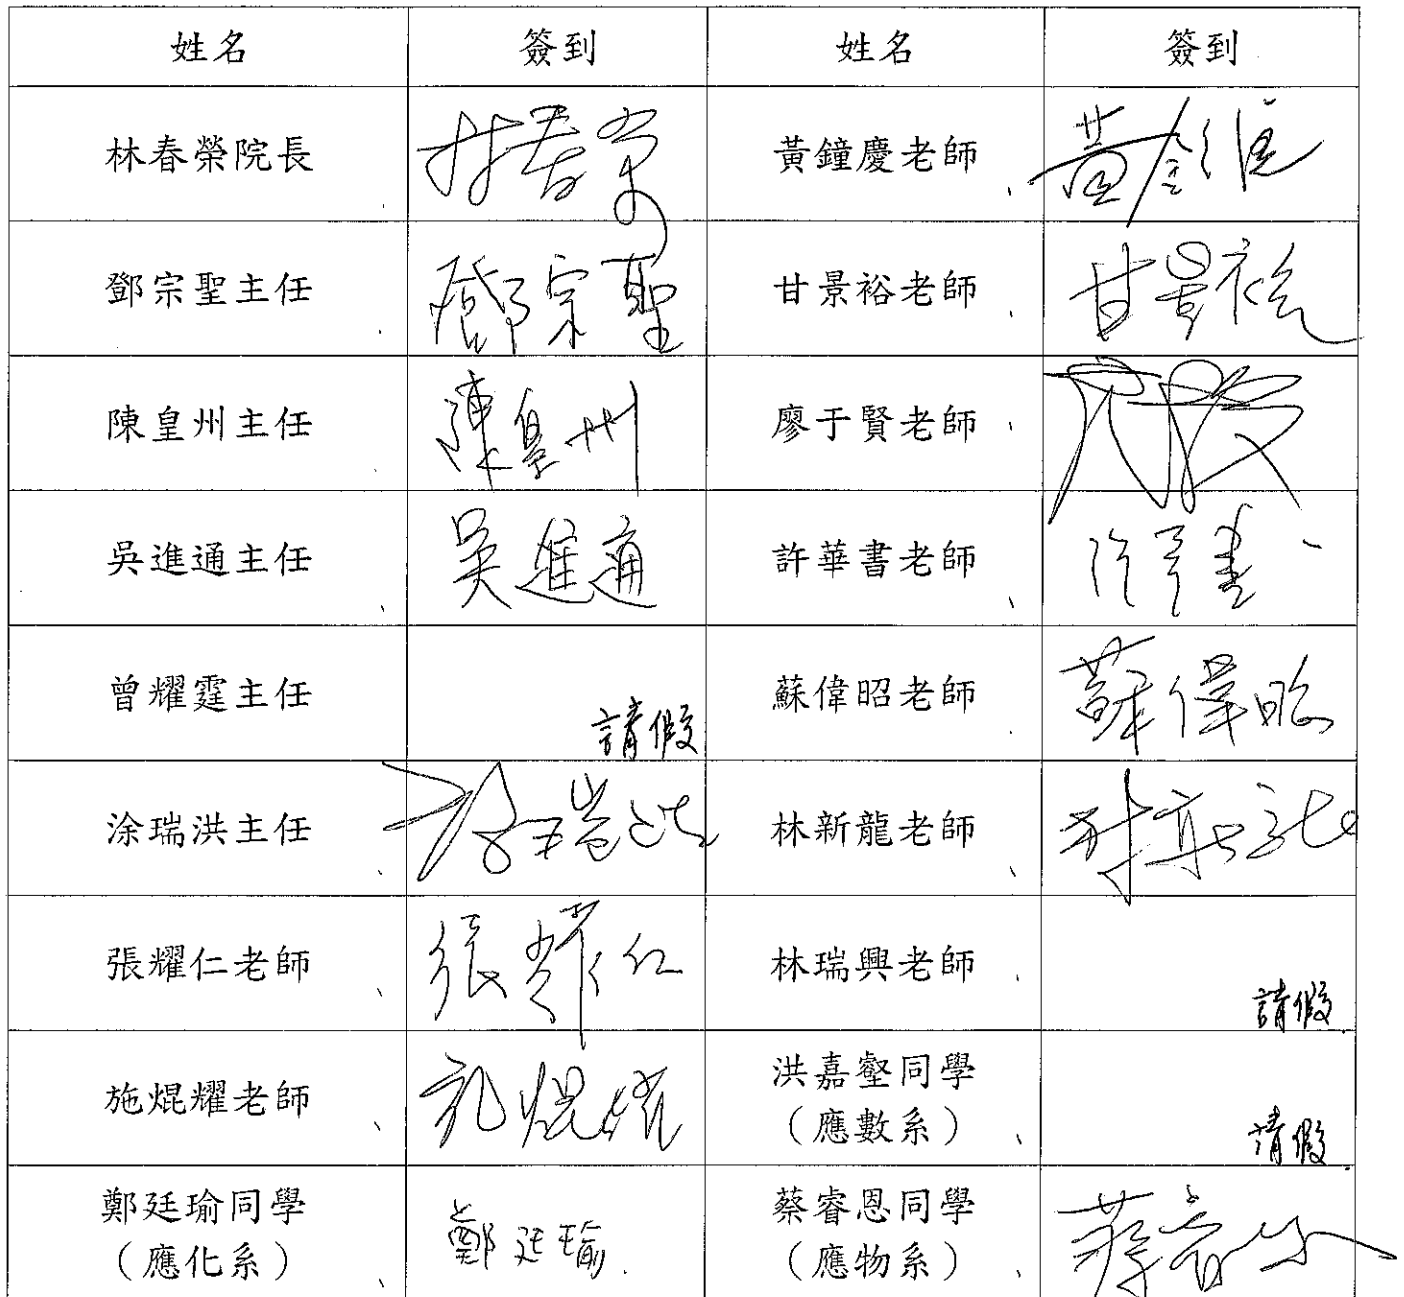 姓名 簽到 姓名 簽到
林春榮院長 林春榮 黃鐘慶老師
鄧宗聖主任 鄧宗聖 甘景裕老師 甘景裕
陳皇州主任 陳皇州 廖于賢老師
吳進通主任 吳進通 許華書老師 許華書
曾耀霆主任 請假 蘇偉昭老師 蘇偉昭
涂瑞洪主任 涂瑞洪 林新龍老師 林新龍
張耀仁老師 張耀仁 林瑞興老師 請假
施焜耀老師 施焜耀 洪嘉壑同學
（應數系） 請假
鄭廷瑜同學 鄭廷瑜 蔡睿恩同學 蔡睿恩
（應化系） （應物系）